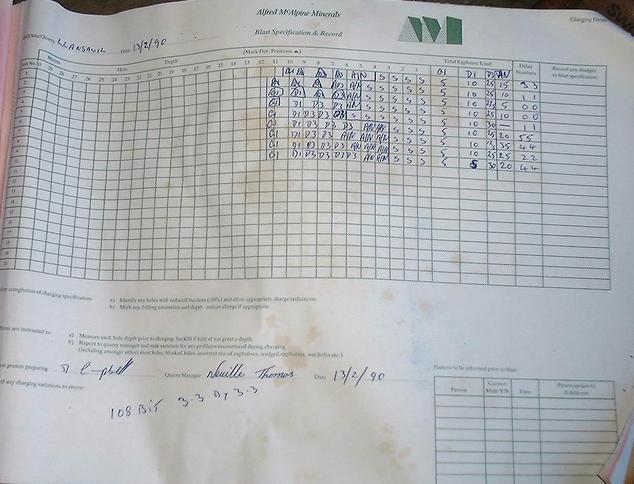 Alfred McAlpine Minerals
Charging Detail
Blast Specification & Record
Site/Quarry LLANSAVIL Date 13/2/90
(Mark Det. Positions)
Depth Total Explosive Used Delay Numbers Record any changes to blast specification
Hole
25 24 23 22 21 20 19 18 17 16 15 14 13 12 11 10 9 8 7 6 5 4 3 2 1 G1 D1 D3 AN
S S S S 5 10 25 15 33
S S S 5 10 25 10 11
S S S 5 10 5 00
G1 D1 D3 D3 AN S S S 5 10 10 00
G1 D1 D3 D3 D3 S S S 5 10 30 11
G1 D1 D3 D3 D3 D3 AN AN S S S 5 10 20 55
G1 D1 D3 D3 D3 AN AN AN S S S 5 10 35 44
G1 D1 D3 D3 D3 AN AN AN S S S 5 10 25 25 22
G1 D1 D3 D3 D3 D3 AN AN S S S 5 5 30 20 44
completion of charging specification: a) Identify any holes with reduced burdens and allow appropriate charge reductions.
b) Mark any drilling anomalies and depth - reduce charge if appropriate.
are instructed to: a) Measure each hole depth prior to charging, backfill if hole of too great a depth.
b) Report to quarry manager and mark variation for any problems encountered during charging
(including amongst others short holes, blocked holes, incorrect mix of explosives, wedged explosives, wet holes etc.)
person preparing D Campbell Quarry Manager Neville Thomas Date 13/2/90
of any charging variations to above:
108 BIT 3.3 By 3.3
Persons to be informed prior to blast
Person Contact Made Y/N Time Person spoken to if different